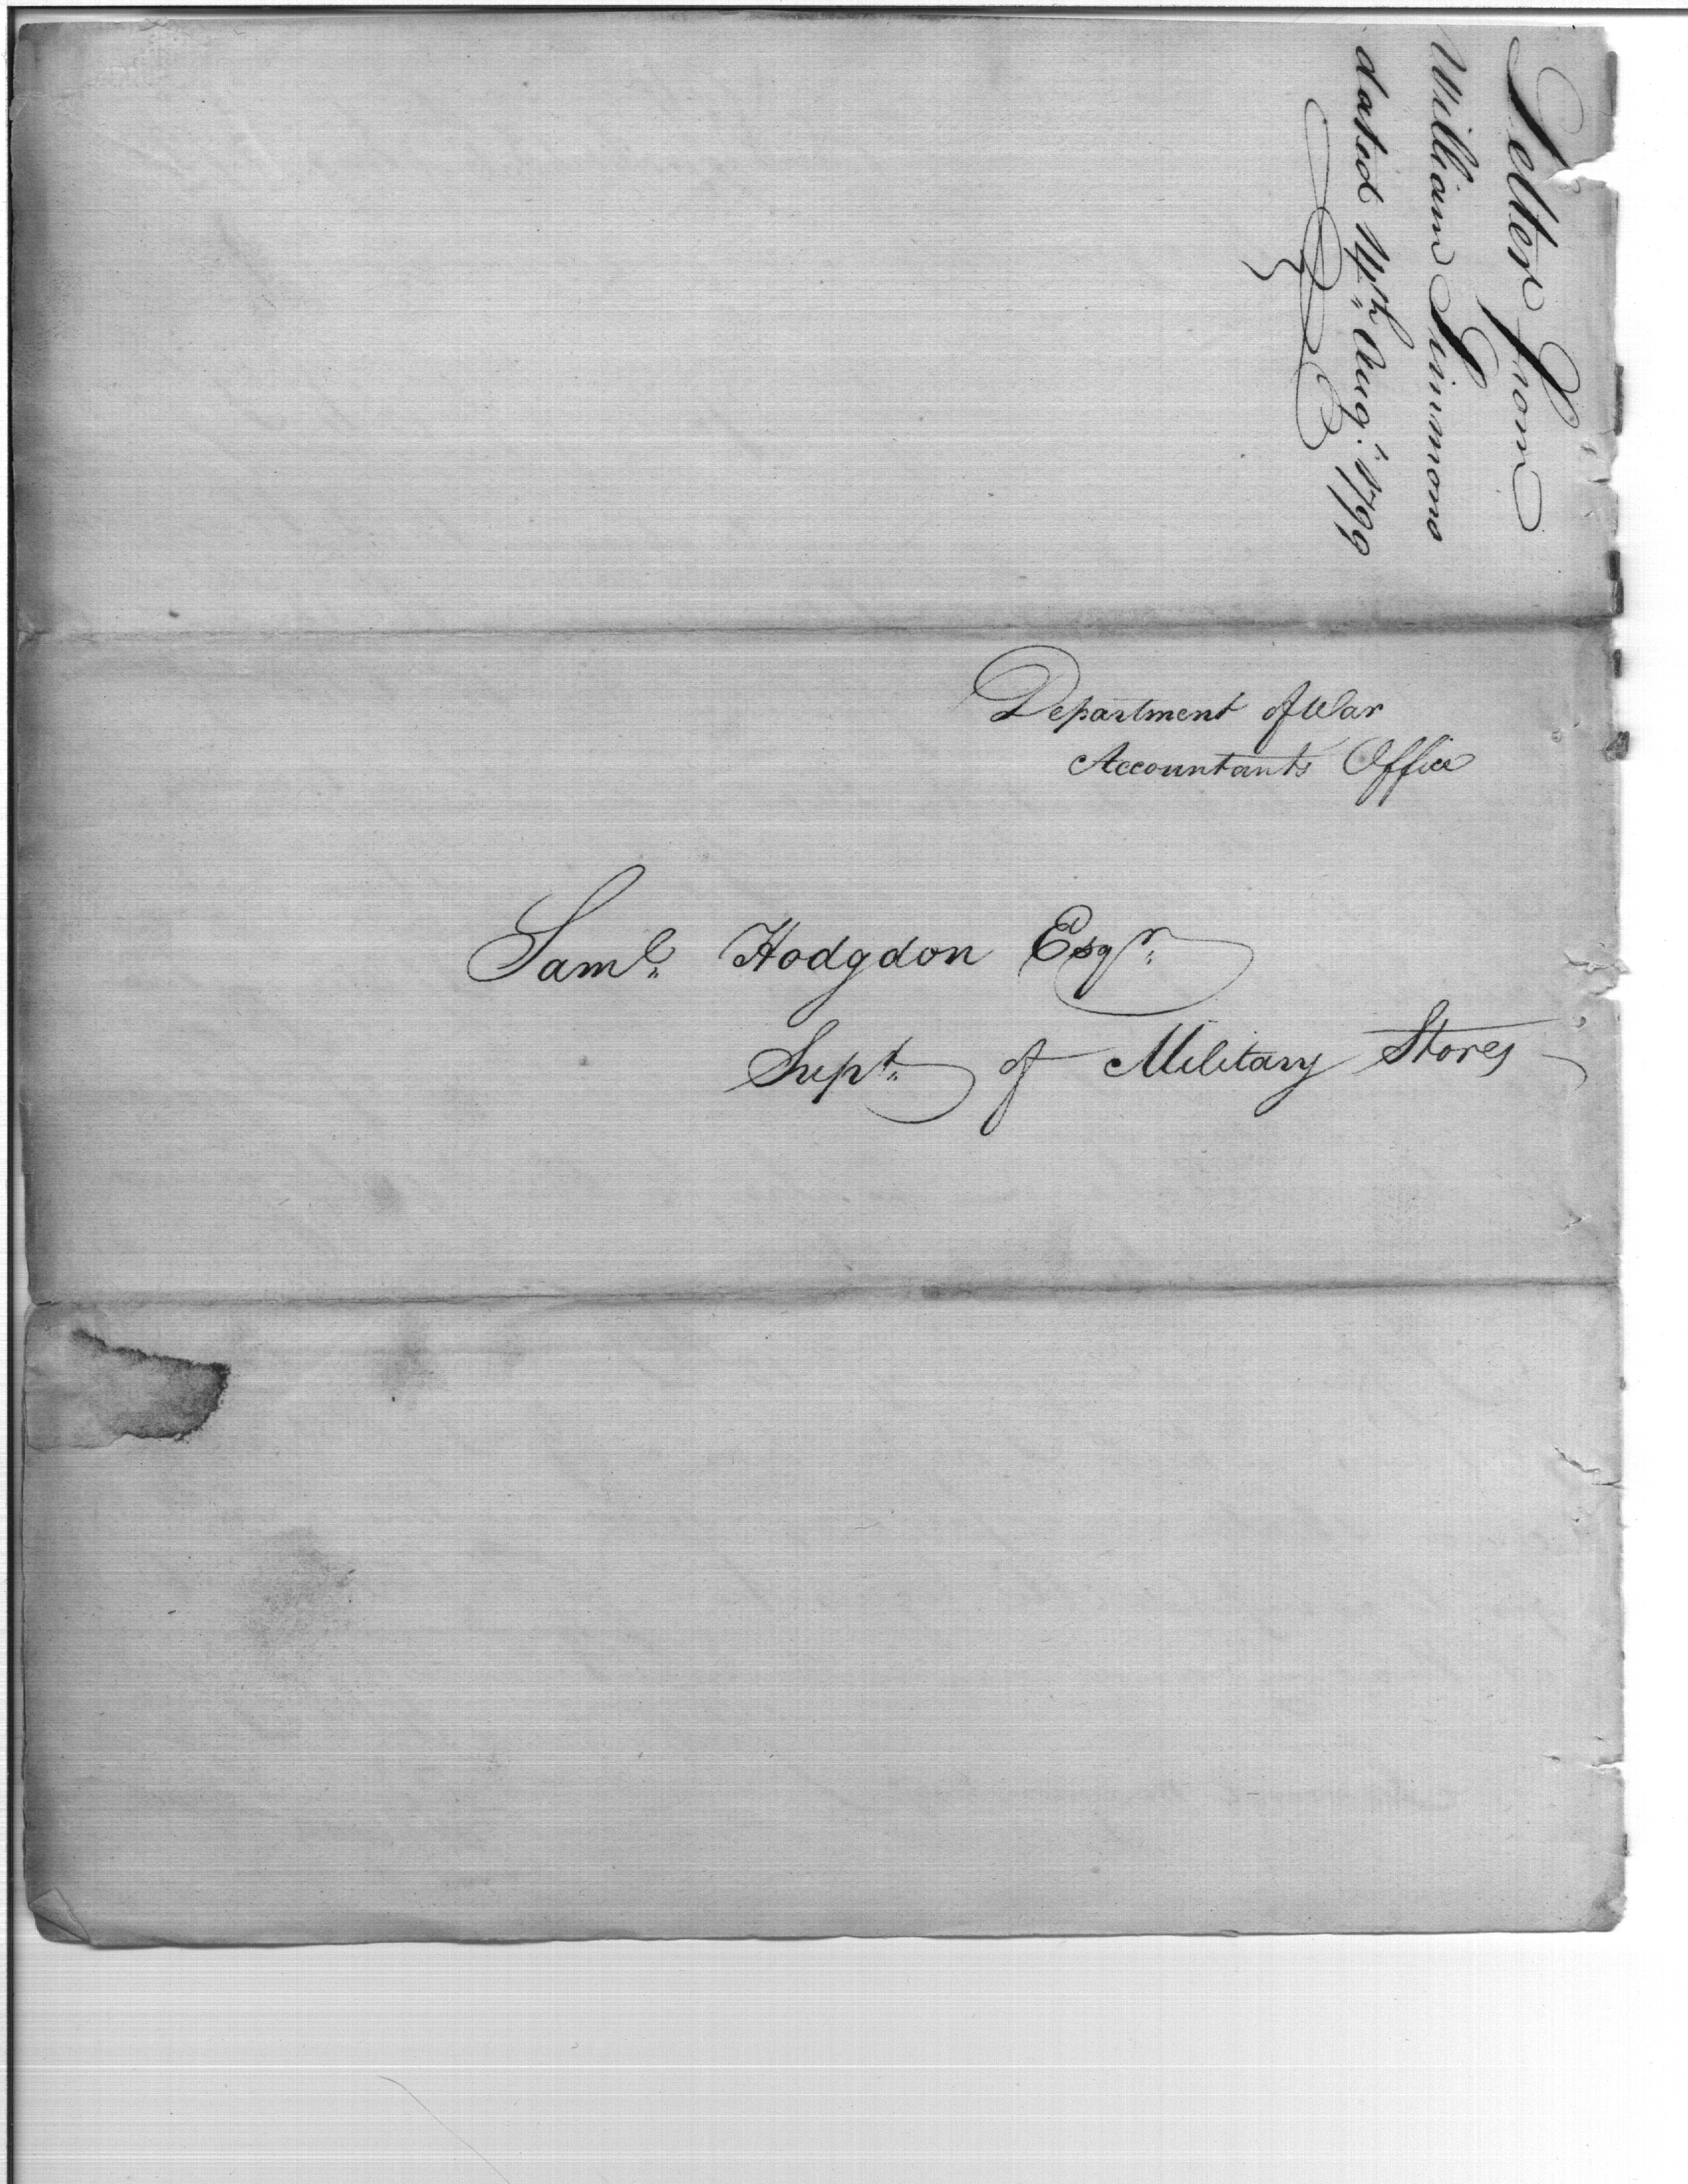 Letter from
William Simmons
dated 14th Augt. 1799
Department of War
Accountants Office
Saml. Hodgdon Esqr.
Supt. of Military Stores